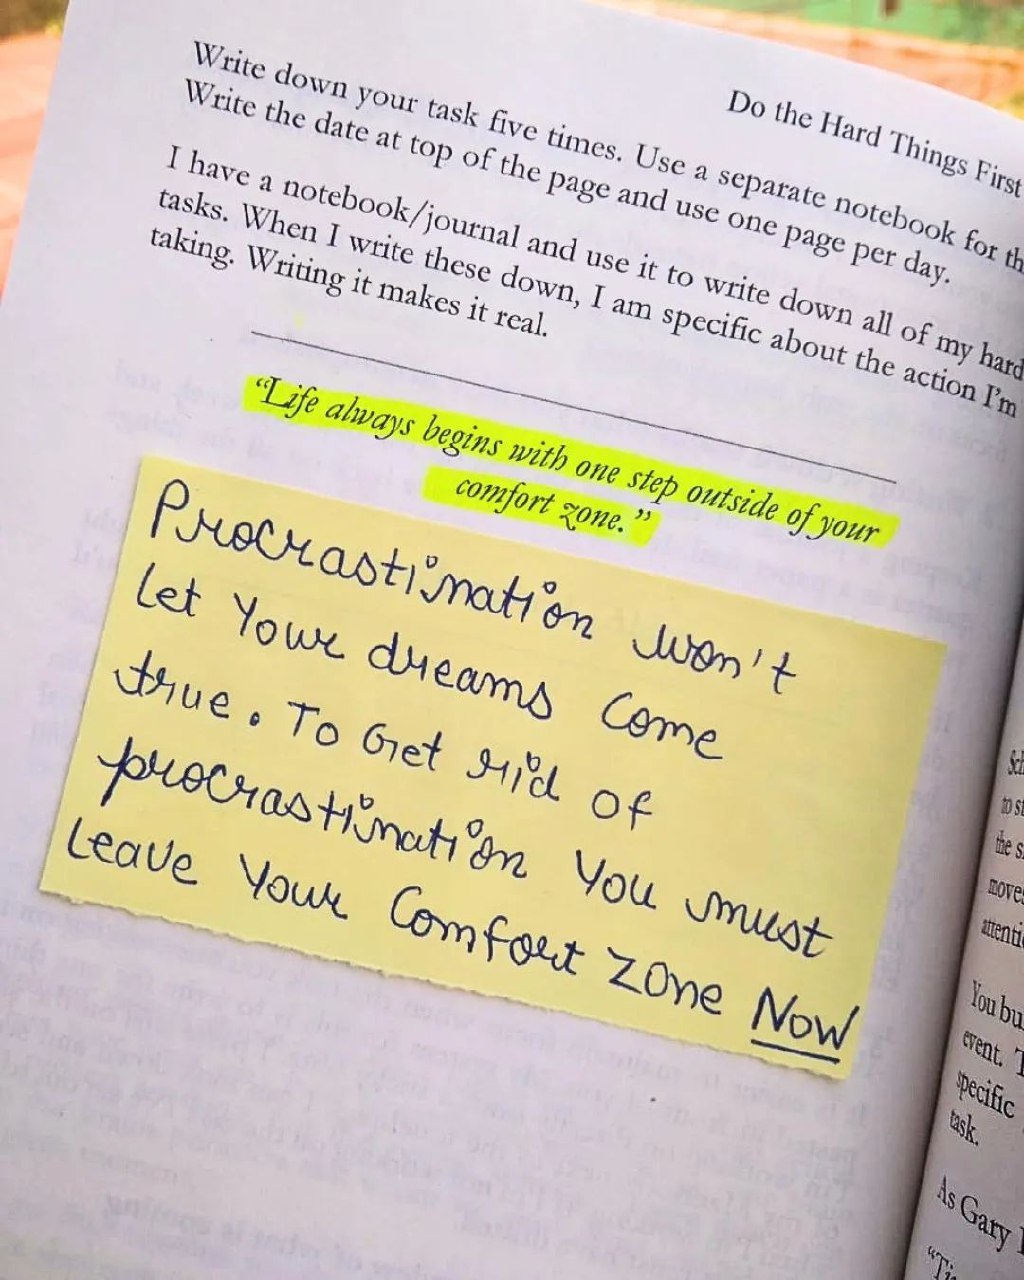 Do the Hard Things First
Write down your task five times. Use a separate notebook for
Write the date at top of the page and use one page per day.
I have a notebook/journal and use it to write down all of my hard
tasks. When I write these down, I am specific about the action I'm
taking. Writing it makes it real.
“Life always begins with one step outside of your
comfort zone.”
Procrastination won't
let Your dreams Come
true. To Get rid of
procrastination You must
Leave Your Comfort Zone Now
to
the
You
event.
specific
task.
As Gary